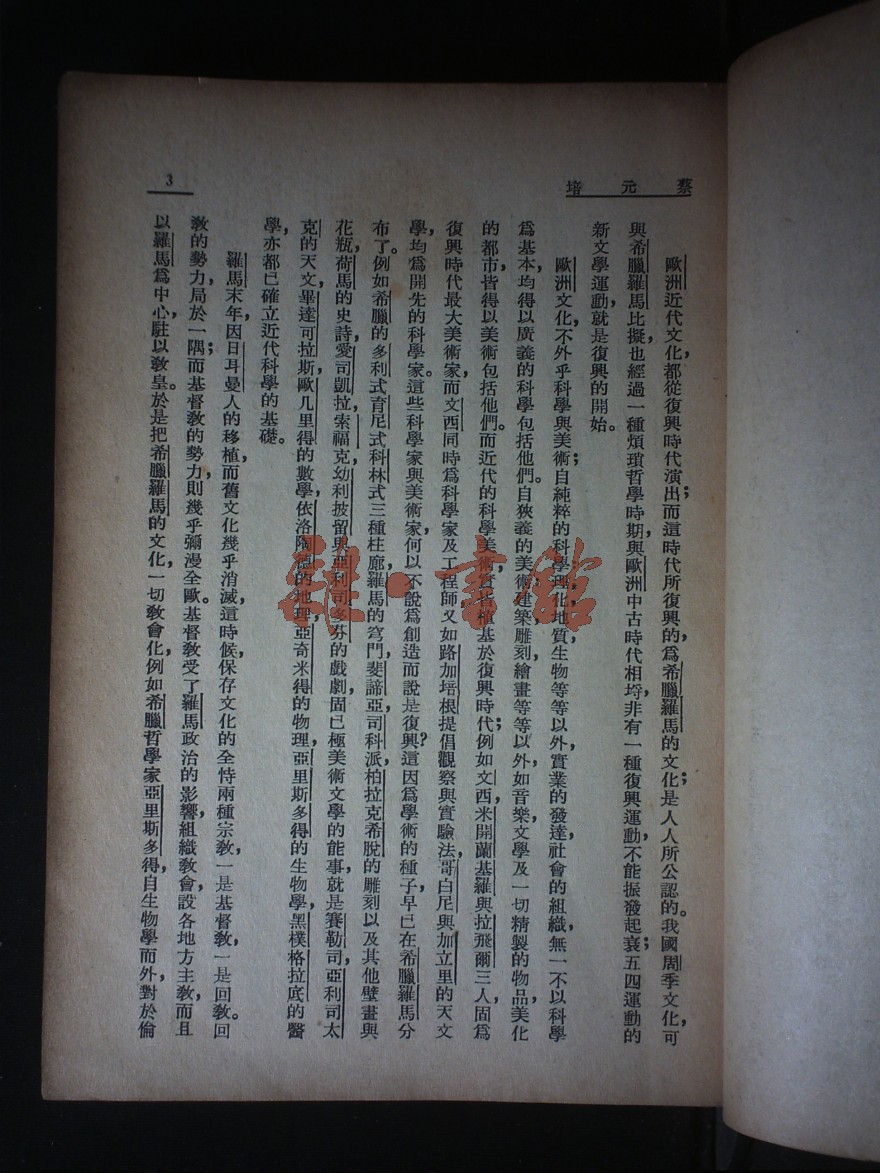 蔡元培
歐洲近代文化，都從復興時代演出；而這時代所復興的，爲希臘羅馬的文化；是人人所公認的。我國周季文化，可
與希臘羅馬比擬，也經過一種煩瑣哲學時期，與歐洲中古時代相埒，非有一種復興運動，不能振發起衰；五四運動的
新文學運動，就是復興的開始。
歐洲文化，不外乎科學與美術；自純粹的科學，理化、地質、生物等等以外，實業的發達，社會的組織，無一不以科學
爲基本，均得以廣義的科學包括他們。自狹義的美術，建築、雕刻、繪畫等等以外，如音樂、文學及一切精製的物品，美化
的都市，皆得以美術包括他們。而近代的科學、美術，實皆植基於復興時代；例如文西、米開蘭基羅與拉飛爾三人，固爲
復興時代最大美術家，而文西同時爲科學家及工程師，又如路加培根提倡觀察與實驗法，哥白尼與加立里的天文
學，均爲開先的科學家。這些科學家與美術家，何以不說爲創造而說是復興？這因爲學術的種子，早已在希臘羅馬分
布了。例如希臘的多利式、育尼式、科林式三種柱廊，羅馬的穹門，斐諦亞、司科派、柏拉克希脫的雕刻以及其他壁畫與
花瓶，荷馬的史詩，愛司凱拉、索福克、幼利披留與亞利司多芬的戲劇，固已極美術文學的能事，就是賽勒司、亞利司太
克的天文，畢達可拉斯、歐几里得的數學，依洛陶德的地理，亞奇米得的物理，亞里斯多得的生物學，黑樸格拉底的醫
學，亦都已確立近代科學的基礎。
羅馬末年，因日耳曼人的移植，而舊文化幾乎消滅，這時候，保存文化的全恃兩種宗敎，一是基督敎，一是回敎。回
敎的勢力，局於一隅；而基督敎的勢力，則幾乎彌漫全歐。基督敎受了羅馬政治的影響，組織敎會，設各地方主敎，而且
以羅馬爲中心，駐以敎皇。於是把希臘羅馬的文化，一切敎會化，例如希臘哲學家亞里斯多得，自生物學而外，對於倫
3
雜·書館